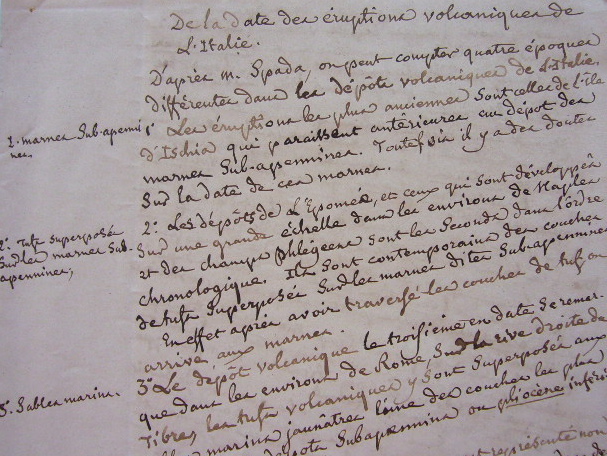 De la date des éruptions volcaniques de
L'Italie.
D'après M. Spada, on peut compter quatre époques
différentes dans les dépôts volcaniques de L'Italie.
1. marnes Sub-apenni
nes,
1° Les éruptions les plus anciennes sont celles de l'île
d'Ischia qui paraissent antérieures au dépôt des
marnes Sub-apennines. Toutefois il y a des doutes
Sur la date de ces marnes.
2°. Tufs superposés
Sur les marnes Sub-
apennines,
2°. Les dépôts de L'Epomée, et ceux qui sont développés
Sur une grande échelle dans les environs de Naples
et des champs phlégéens sont les Seconds dans l'ordre
chronologique. Ils sont contemporains des couches
de tufs Superposés Sur les marnes dites Subapennines
En effet après avoir traversé les couches de tufs on
arrive aux marnes.
3°. Sables marins.
3° Le dépôt volcanique le troisième en date se remar-
que dans les environs de Rome, Sur la rive droite du
Tibre, les tufs volcaniques y sont Superposés aux
marins jaunâtres l'une des couches les plus
dépôts Subapennins ou pliocène inféri
représenté non